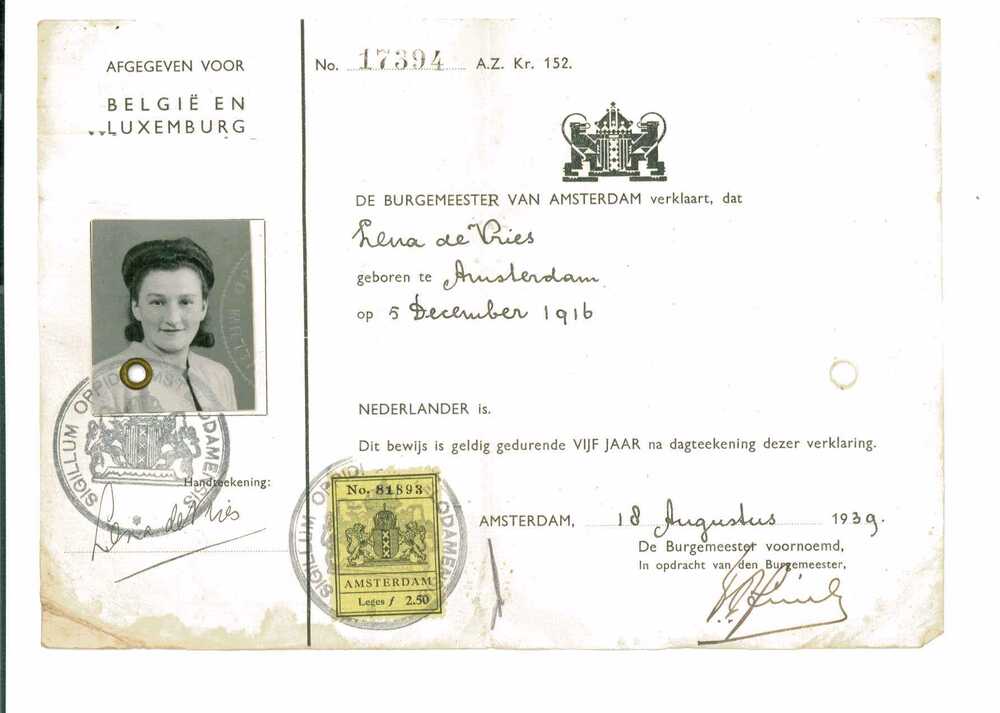 AFGEGEVEN VOOR
BELGIË EN
LUXEMBURG
SIGILLUM OPPIDI AMSTELODAMENSIS
Handteekening:
Lena de Vries
No. 17394 A.Z. Kr. 152.
DE BURGEMEESTER VAN AMSTERDAM verklaart, dat
Lena de Vries
geboren te Amsterdam
op 5 December 1916
NEDERLANDER is.
Dit bewijs is geldig gedurende VIJF JAAR na dagteekening dezer verklaring.
No. 81893
AMSTERDAM
Leges ƒ 2.50
SIGILLUM OPPIDI ODAMEN
AMSTERDAM, 18 Augustus 1939.
De Burgemeester voornoemd,
In opdracht van den Burgemeester,